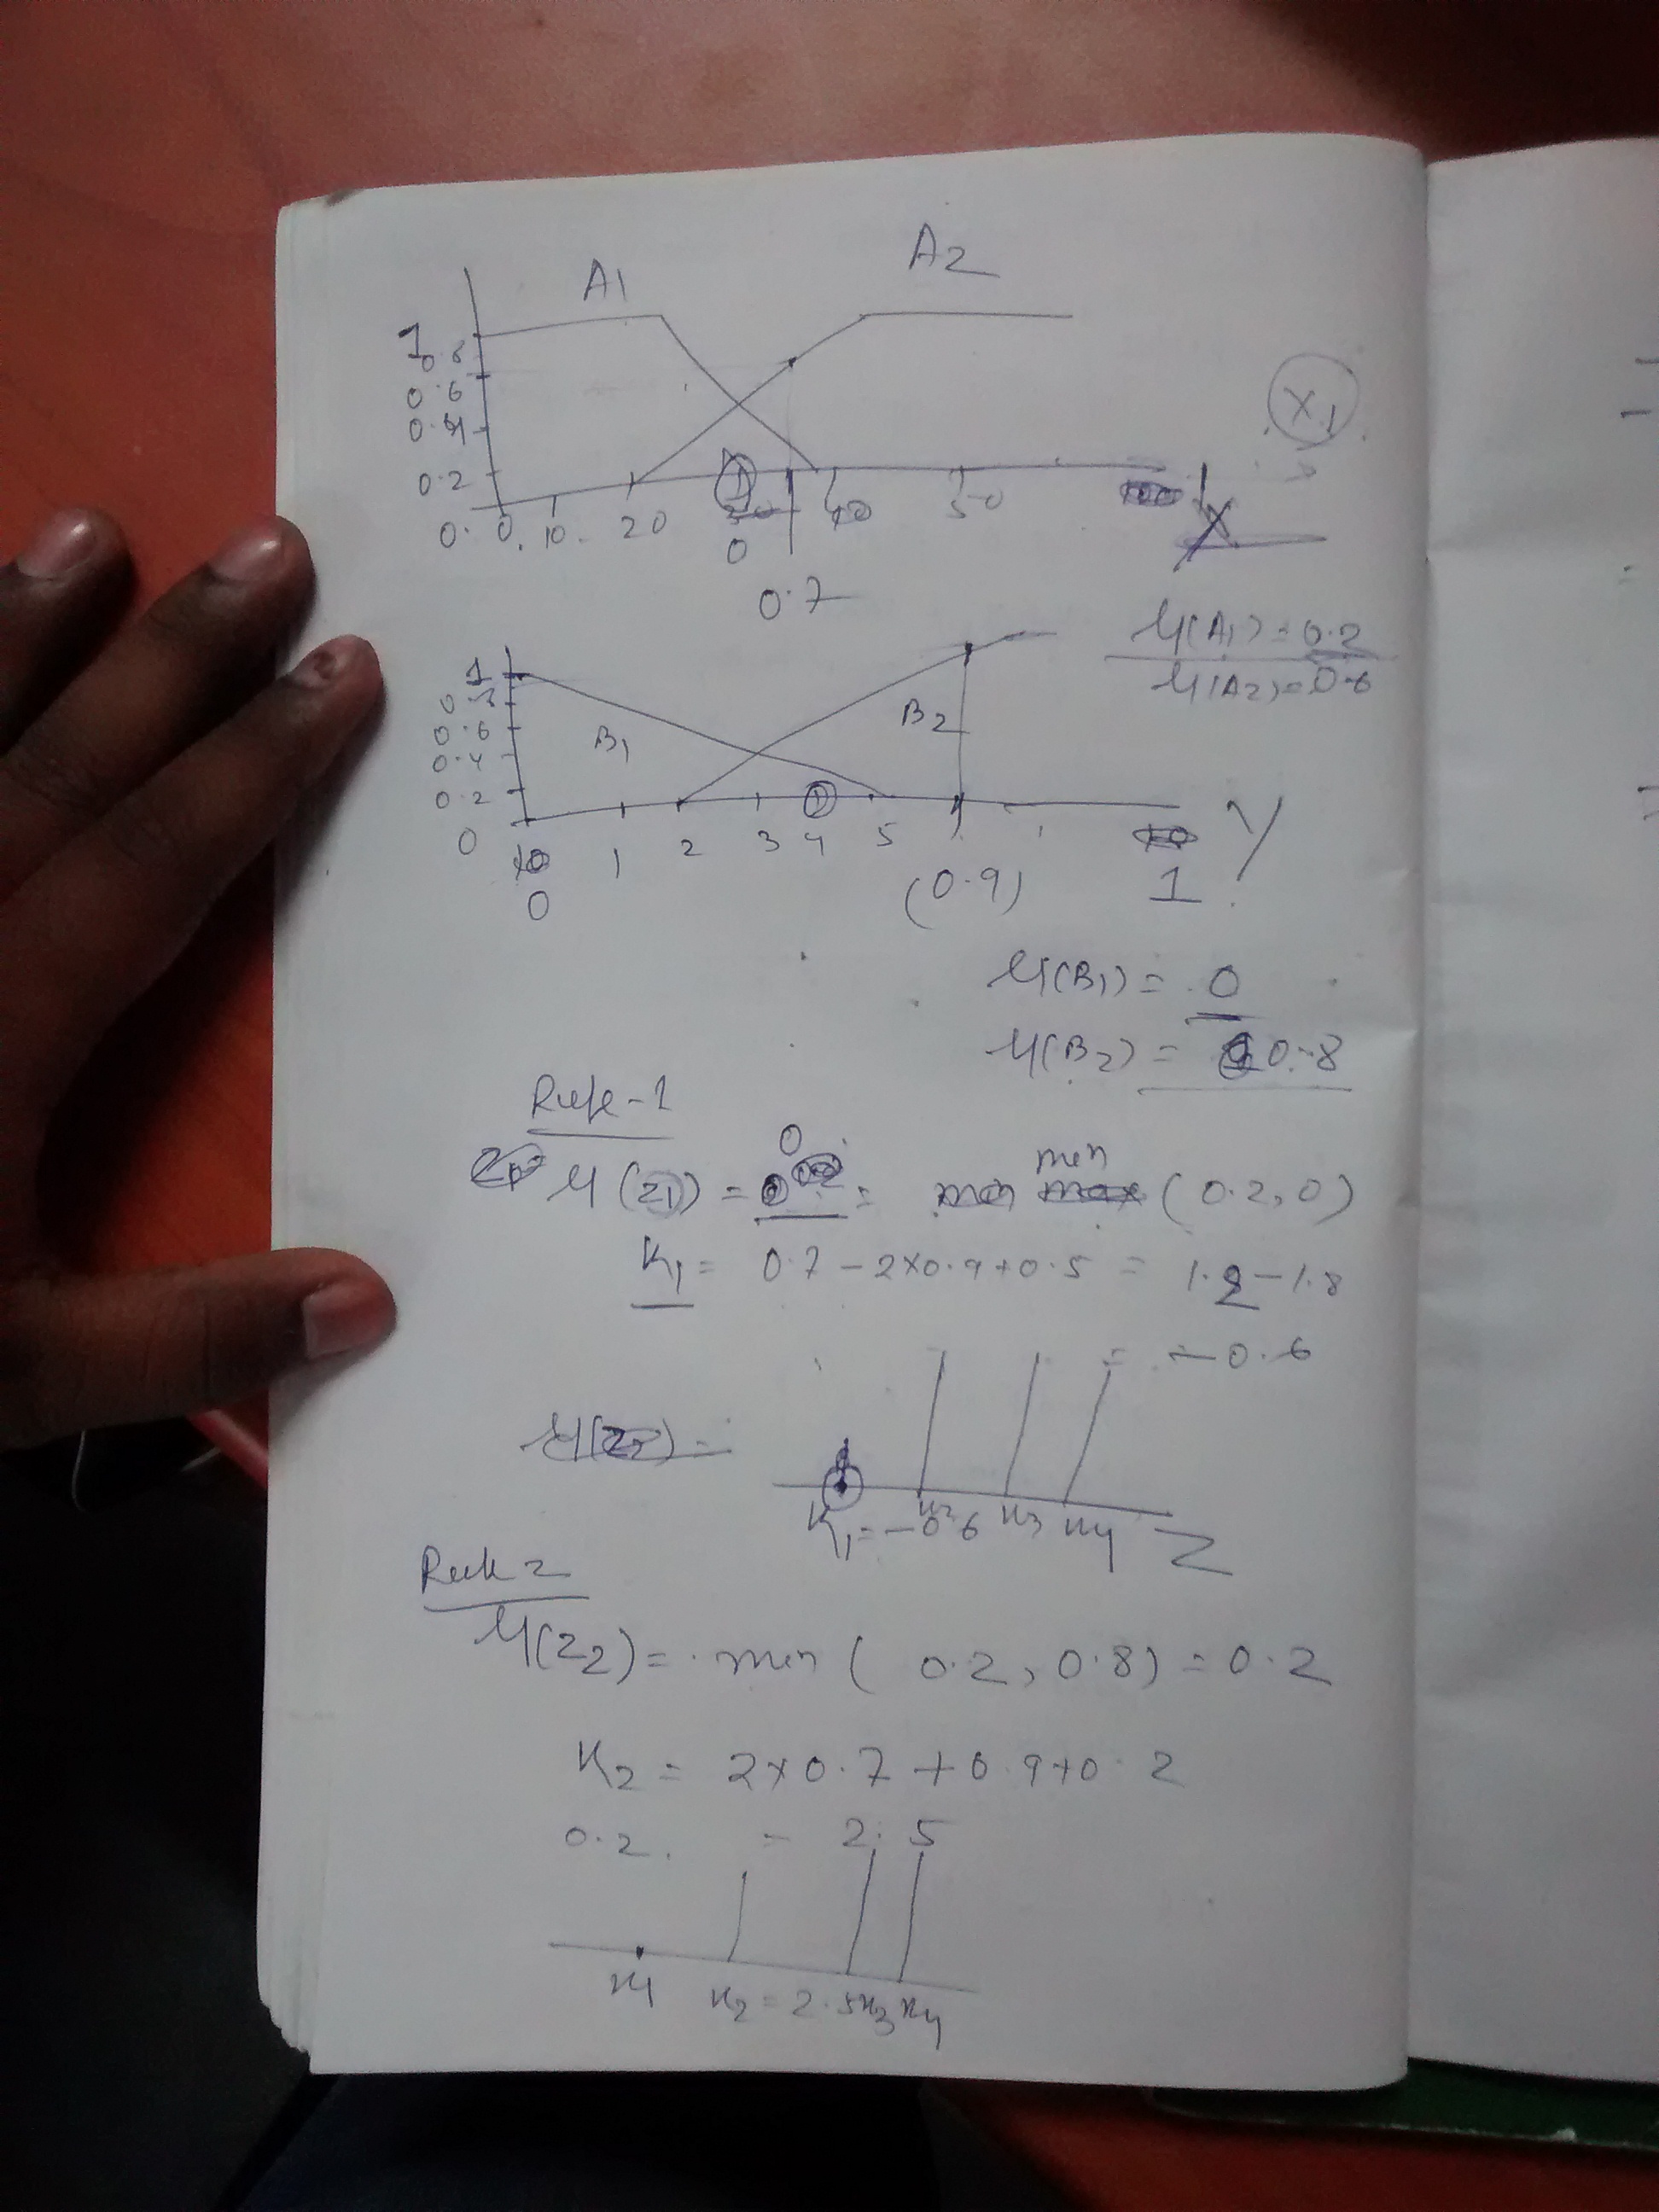 A1 A2
1
0.8
0.6
0.4
0.2
0. 0. 10. 20 40 50
X1
X
0
0.7
μ(A1) = 0.2
μ(A2) = 0.6
1
0.8
0.6
0.4
0.2
0
B1 B2
0 1 2 3 4 5
(0.9) 1 Y
μ(B1) = 0
μ(B2) = 0.8
Rule-1
μ(z1) = 0 = min (0.2, 0)
K1 = 0.7 - 2×0.9+0.5 = 1.2 - 1.8
= -0.6
K1 = -0.6 K2 K3 K4 Z
Rule 2
μ(z2) = min ( 0.2, 0.8) = 0.2
K2 = 2×0.7 + 0.9+0.2
0.2. = 2.5
K1 K2 = 2.5 K3 K4